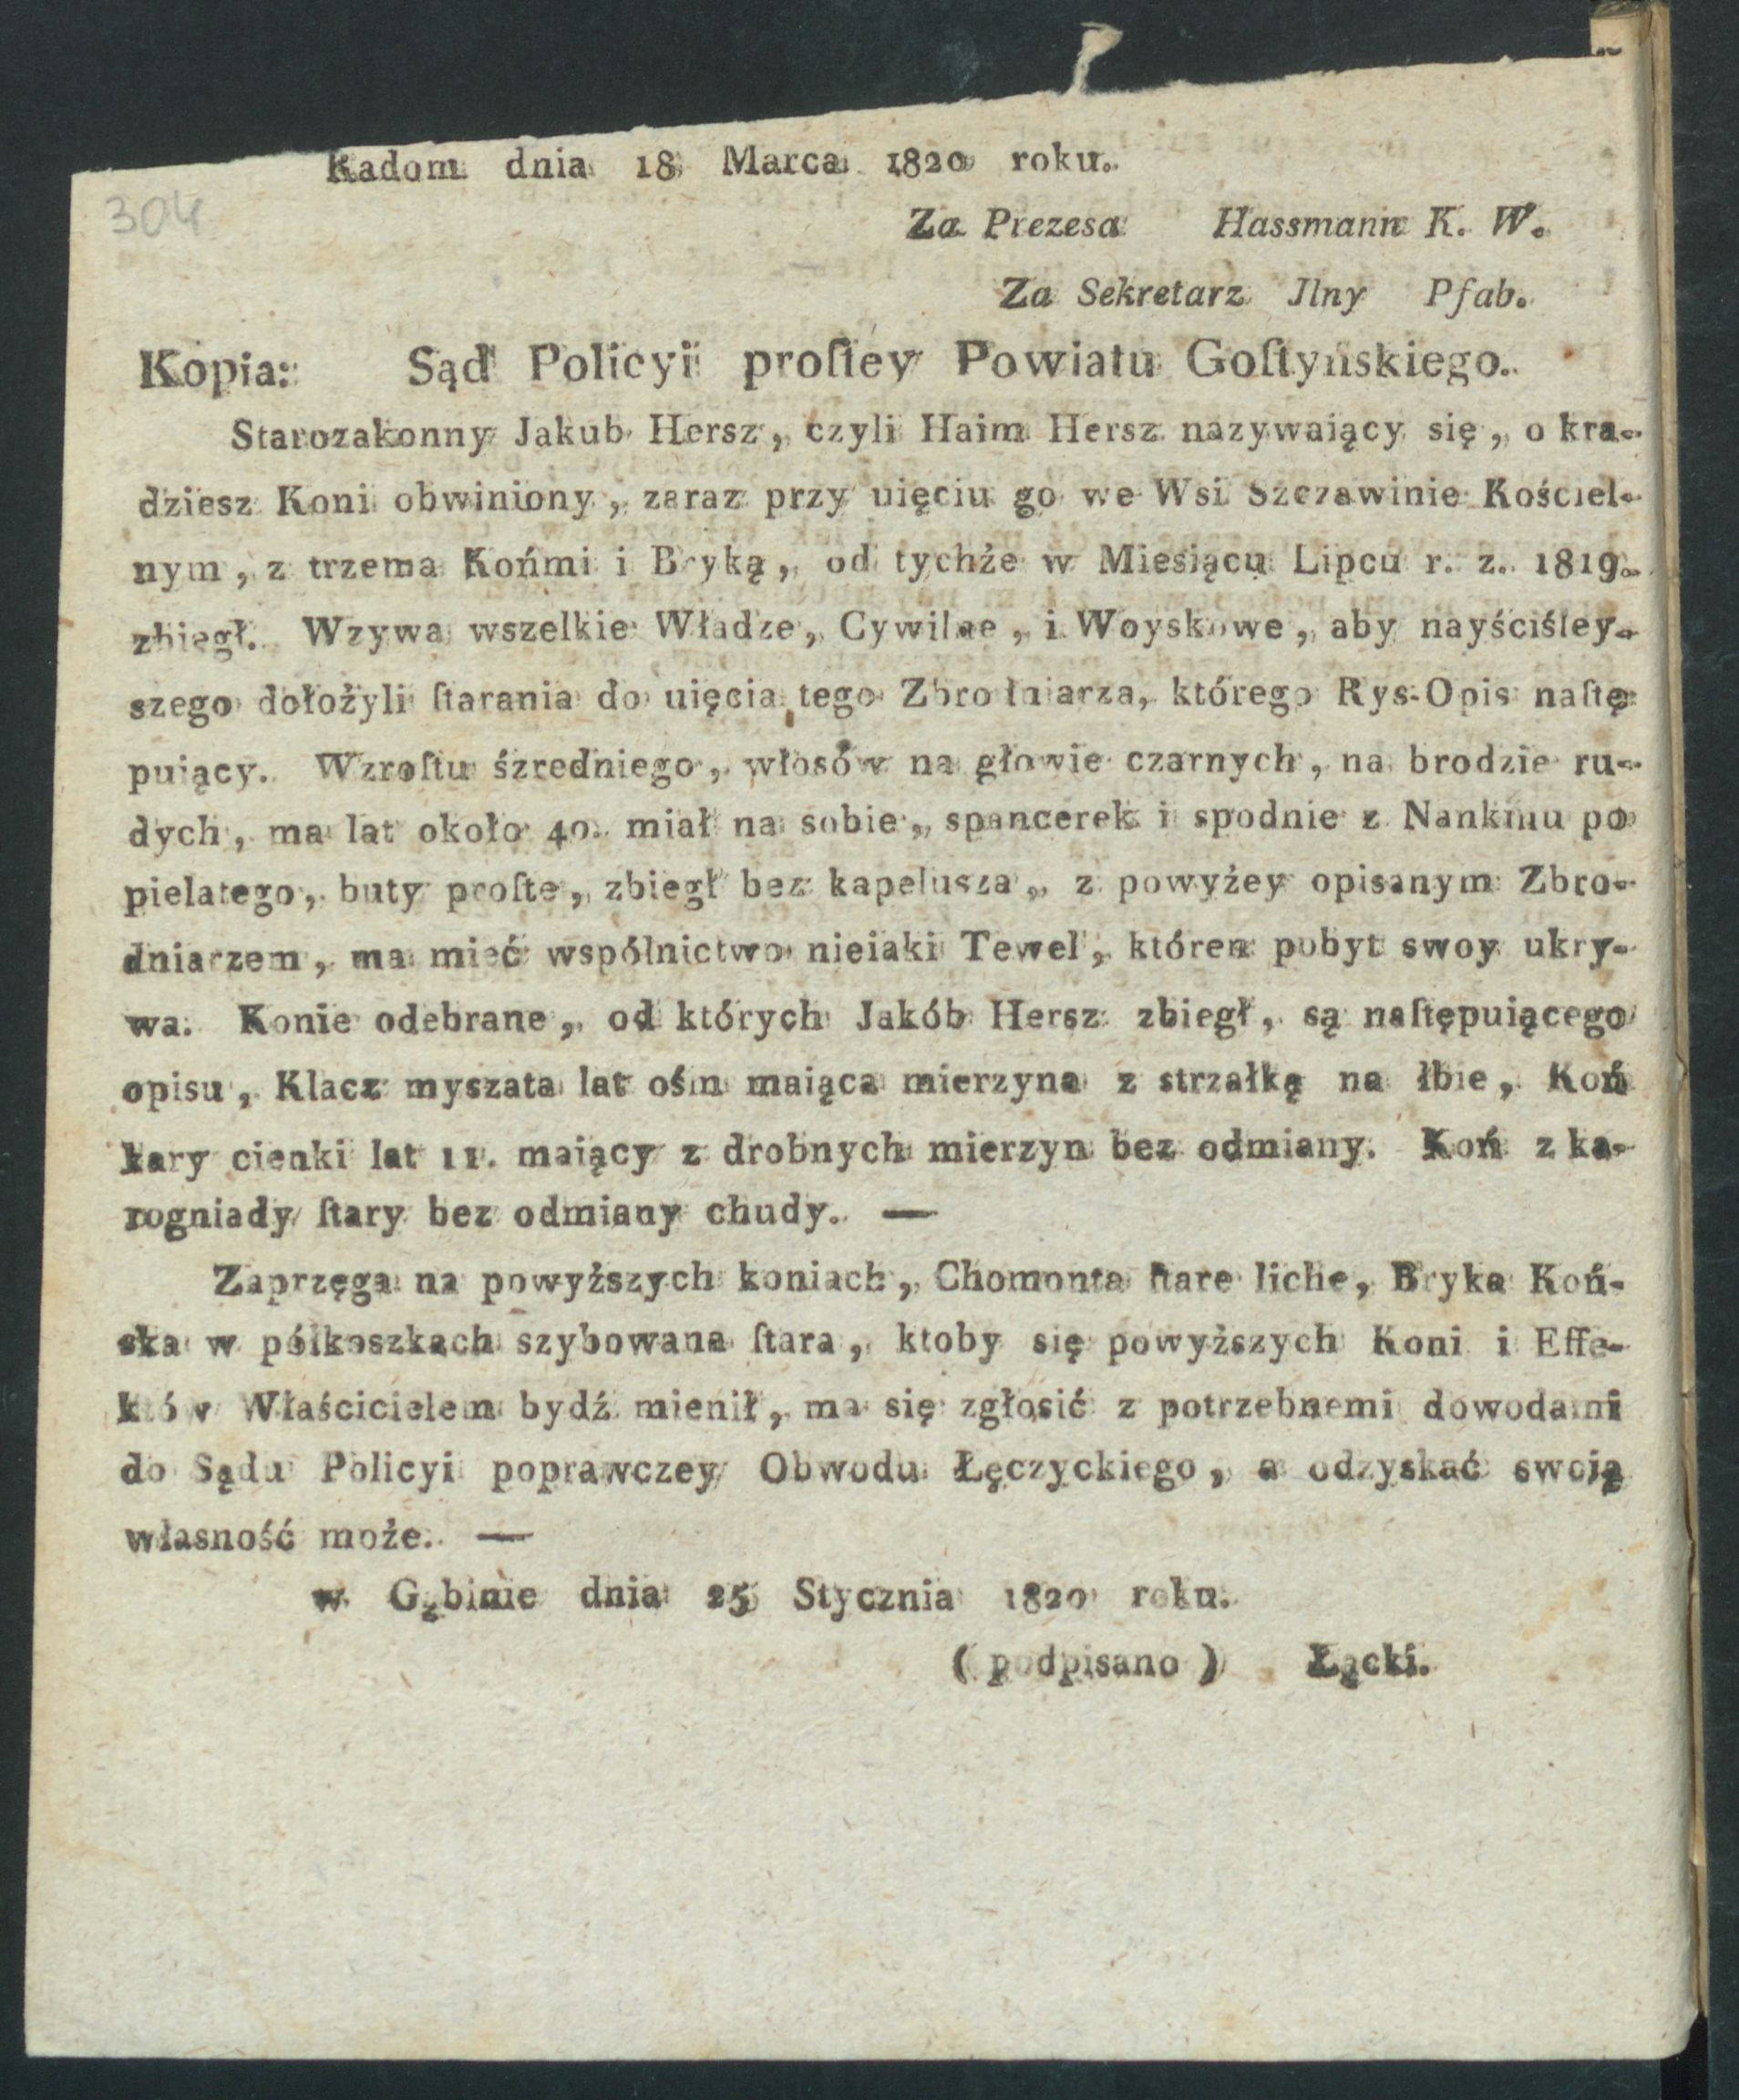 Radom dnia 18 Marca 1820 roku.
304
Za Prezesa Hassmann K. W.
Za Sekretarz Jlny Pfab.
Kopia: Sąd Policyi proſtey Powiatu Goſtyńskiego.
Starozakonny Jakub Hersz, czyli Haim Hersz nazywaiący się, o kra-
dziesz Koni obwiniony, zaraz przy uięciu go we Wsi Szczawinie Kościel-
nym, z trzema Końmi i Bryką, od tychże w Miesiącu Lipcu r. z. 1819.
zbiegł. Wzywa wszelkie Władze, Cywilne, i Woyskowe, aby nayściśley-
szego dołożyli ſtarania do uięcia tego Zbrodniarza, którego Rys-Opis naſtę
puiący. Wzroſtu śzredniego, włosów na głowie czarnych, na brodzie ru-
dych, ma lat około 40. miał na sobie, spancerek i spodnie z Nankinu po
pielatego, buty proſte, zbiegł bez kapelusza, z powyżey opisanym Zbro-
dniarzem, ma mieć wspólnictwo nieiaki Tewel, któren pobyt swoy ukry-
wa. Konie odebrane, od których Jakób Hersz zbiegł, są naſtępuiącego
opisu, Klacz myszata lat ośm maiąca mierzyna z strzałką na łbie, Koń
kary cienki lat 11. maiący z drobnych mierzyn bez odmiany. Koń z ka-
rogniady ſtary bez odmiany chudy. —
Zaprzęga na powyższych koniach, Chomonta ſtare liche, Bryka Koń-
ska w półkoszkach szybowana ſtara, ktoby się powyższych Koni i Effe-
któw Właścicielem bydź mienił, ma się zgłosić z potrzebnemi dowodami
do Sądu Policyi poprawczey Obwodu Łęczyckiego, a odzyskać swoią
własność może. —
w Gąbinie dnia 25 Stycznia 1820 roku.
(podpisano) Łącki.